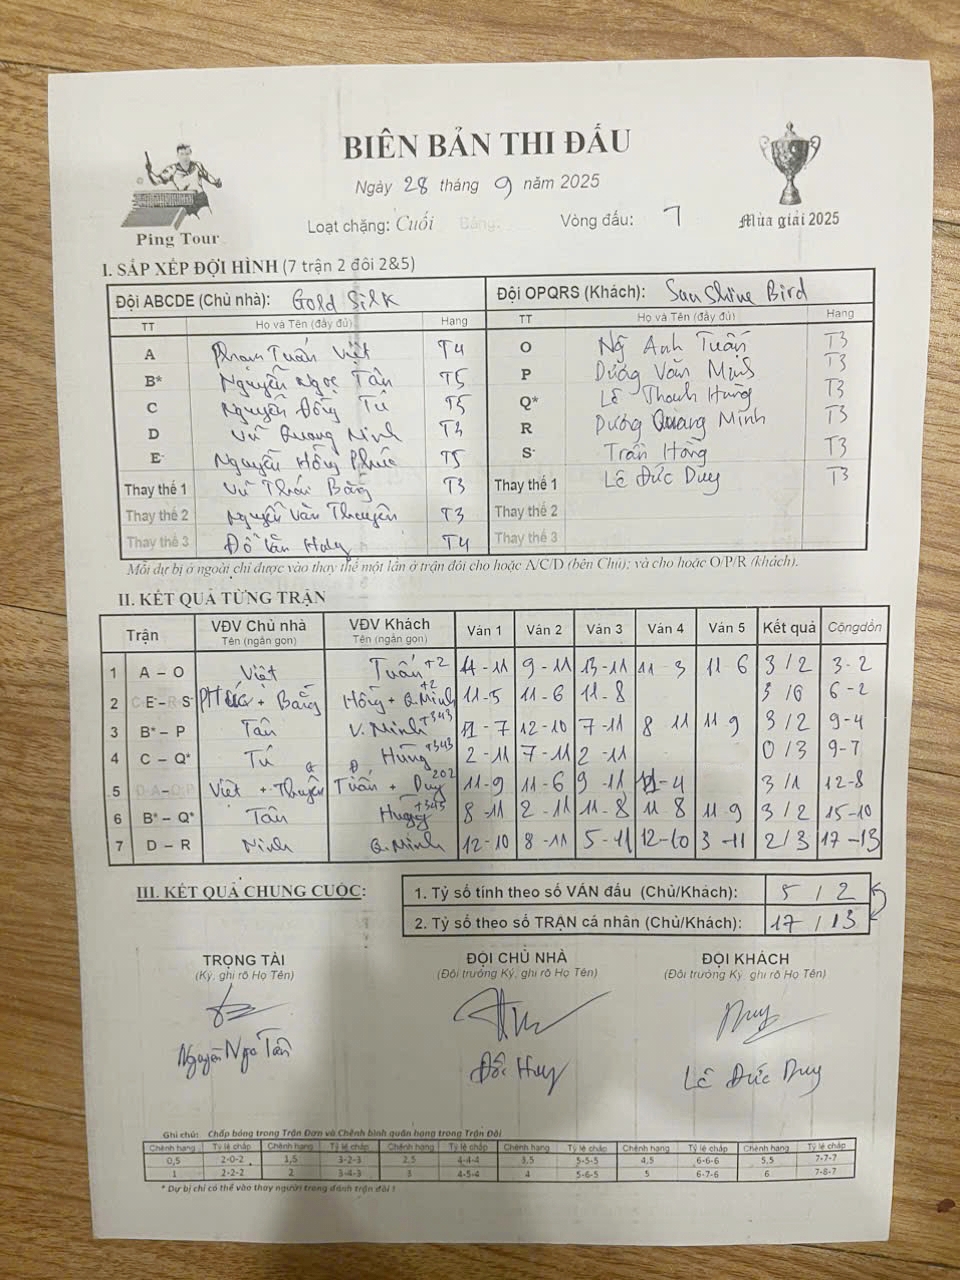 BIÊN BẢN THI ĐẤU
Ngày 28 tháng 9 năm 2025
Loạt chặng: Cuối Bảng: Vòng đấu: 7
Ping Tour
Mùa giải 2025
I. SẮP XẾP ĐỘI HÌNH (7 trận 2 đôi 2&5)
Đội ABCDE (Chủ nhà): Gold Silk Đội OPQRS (Khách): Sunshine Bird
TT Họ và Tên (đầy đủ) Hạng TT Họ và Tên (đầy đủ) Hạng
A Phạm Tuấn Việt T4 O Ng Anh Tuấn T3
B* Nguyễn Ngọc Tân T5 P Dương Văn Minh T3
C Nguyễn Đồng Tú T5 Q* Lê Thanh Hùng T3
D Vũ Quang Ninh T3 R Dương Quang Minh T3
E Nguyễn Hồng Phúc T5 S Trần Hồng T3
Thay thế 1 Vũ Thái Bằng T3 Thay thế 1 Lê Đức Duy T3
Thay thế 2 Nguyễn Văn Thuyên T3 Thay thế 2
Thay thế 3 Đỗ Văn Huy T4 Thay thế 3
Mỗi dự bị ở ngoài chỉ được vào thay thế một lần ở trận đôi cho hoặc A/C/D (bên Chủ); và cho hoặc O/P/R (khách).
II. KẾT QUẢ TỪNG TRẬN
Trận VĐV Chủ nhà Tên (ngắn gọn) VĐV Khách Tên (ngắn gọn) Ván 1 Ván 2 Ván 3 Ván 4 Ván 5 Kết quả Cộngdồn
1 A – O Việt Tuấn +2 - 11 9 - 11 13 - 11 11 - 3 11 - 6 3 / 2 3 - 2
2 E – S Phúc + Bằng Hồng + Q.Minh +2 11 - 5 11 - 6 11 - 8 3 / 0 6 - 2
3 B* – P Tân V. Minh +343 11 - 7 12 - 10 7 - 11 8 11 11 9 3 / 2 9 - 4
4 C – Q* Tú Hùng +343 2 - 11 7 - 11 2 - 11 0 / 3 9 - 7
5 Việt + Thuyên Tuấn + Duy 202 11 - 9 11 - 6 9 - 11 11 - 4 3 / 1 12 - 8
6 B* – Q* Tân Hùng 8 - 11 2 - 11 11 - 8 11 8 11 - 9 3 / 2 15 - 10
7 D – R Ninh Q.Minh 12 - 10 8 - 11 5 - 11 12 - 10 3 - 11 2 / 3 17 - 13
III. KẾT QUẢ CHUNG CUỘC:
1. Tỷ số tính theo số VÁN đấu (Chủ/Khách): 5 / 2
2. Tỷ số theo số TRẬN cá nhân (Chủ/Khách): 17 / 13
TRỌNG TÀI ĐỘI CHỦ NHÀ ĐỘI KHÁCH
(Ký, ghi rõ Họ Tên) (Đội trưởng Ký, ghi rõ Họ Tên) (Đội trưởng Ký, ghi rõ Họ Tên)
Duy
Nguyễn Ngọc Tân Huy Lê Đức Duy
Ghi chú: Chấp bóng trong Trận Đơn và Chênh bình quân hạng trong Trận Đôi
Chênh hạng Tỷ lệ chấp Chênh hạng Tỷ lệ chấp Chênh hạng Tỷ lệ chấp Chênh hạng Tỷ lệ chấp Chênh hạng Tỷ lệ chấp Chênh hạng Tỷ lệ chấp
0,5 2-0-2 1,5 3-2-3 2,5 4-4-4 3,5 5-5-5 4,5 6-6-6 5,5 7-7-7
1 2-2-2 2 3-4-3 3 4-5-4 4 5-6-5 5 6-7-6 6 7-8-7
* Dự bị chỉ có thể vào thay người trong đánh trận đôi !